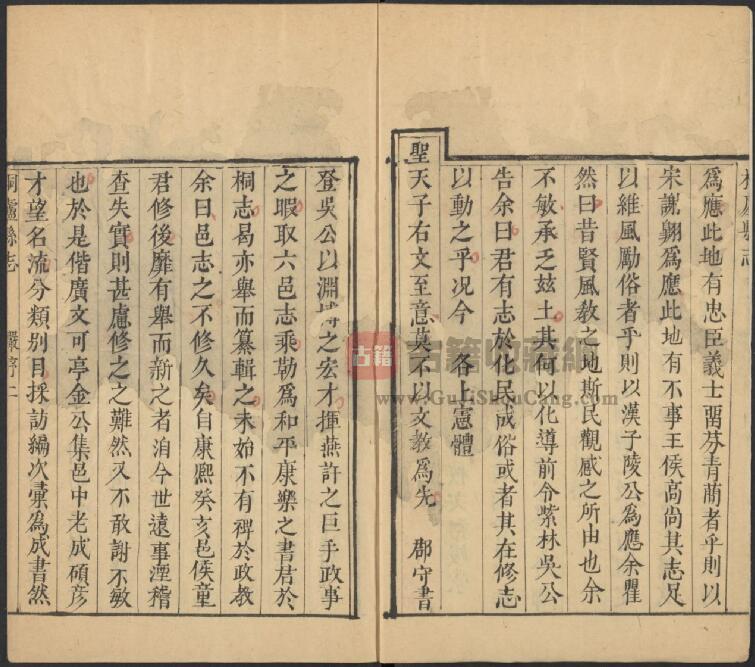 爲應此地有忠臣義士畱芬青蕳者乎則以
宋謝翺爲應此地有不事王侯高尚其志足
以維風勵俗者乎則以漢子陵公爲應余瞿
然曰昔賢風敎之地斯民觀感之所由也余
不敏承乏玆土其何以化導前令紫林吳公
告余曰君有志於化民成俗或者其在修志
以動之乎况今 各上憲體
聖天子右文至意莫不以文教爲先 郡守書
登吳公以淵博之宏才揮燕許之巨手政事
之暇取六邑志乘勒爲和平康樂之書君於
桐志曷亦舉而纂輯之未始不有裨於政教
余曰邑志之不修久矣自康熙癸亥邑侯童
君修後靡有舉而新之者洎今世遠事湮稽
查失實則甚慮修之之難然又不敢謝不敏
也於是偕廣文可亭金公集邑中老成碩彥
才望名流分類别目採訪編次彙爲成書然
桐廬縣志 嚴序 二
古籍
古籍收藏網
www.GujiShouCang.com